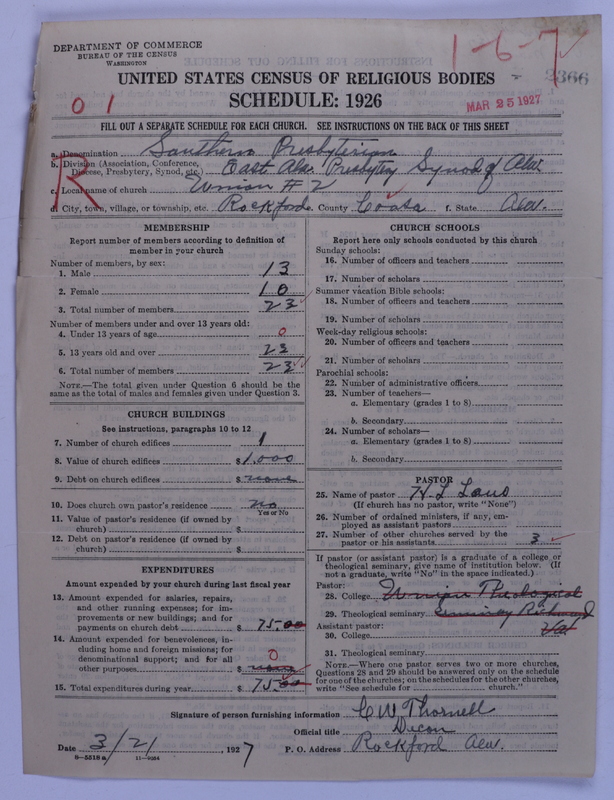 DEPARTMENT OF COMMERCE
BUREAU OF THE CENSUS
WASHINGTON
1-6-7
UNITED STATES CENSUS OF RELIGIOUS BODIES
3366
SCHEDULE: 1926
MAR 25 1927
0 1
FILL OUT A SEPARATE SCHEDULE FOR EACH CHURCH. SEE INSTRUCTIONS ON THE BACK OF THIS SHEET
R
a. Denomination Southern Presbyterian
b. Division (Association, Conference, Diocese, Presbytery, Synod, etc.) East Ala. Presbytry Synod of Ala.
c. Local name of church Union # 2
d. City, town, village, or township, etc. Rockford County Coosa f. State Ala.
MEMBERSHIP
Report number of members according to definition of
member in your church
Number of members, by sex:
1. Male 13
2. Female 10
3. Total number of members 23
Number of members under and over 13 years old:
4. Under 13 years of age 0
5. 13 years old and over 23
6. Total number of members 23
NOTE.—The total given under Question 6 should be the
same as the total of males and females given under Question 3.
CHURCH BUILDINGS
See instructions, paragraphs 10 to 12
7. Number of church edifices 1
8. Value of church edifices $1.000
9. Debt on church edifices $ none
10. Does church own pastor's residence no
Yes or No
11. Value of pastor's residence (if owned by
church) $
12. Debt on pastor's residence (if owned by
church) $
EXPENDITURES
Amount expended by your church during last fiscal year
13. Amount expended for salaries, repairs,
and other running expenses; for im-
provements or new buildings; and for
payments on church debt $ 75.00
14. Amount expended for benevolences, in-
cluding home and foreign missions; for
denominational support; and for all
other purposes $ none 0
15. Total expenditures during year $ 75.00
CHURCH SCHOOLS
Report here only schools conducted by this church
Sunday schools:
16. Number of officers and teachers
17. Number of scholars
Summer vacation Bible schools:
18. Number of officers and teachers
19. Number of scholars
Week-day religious schools:
20. Number of officers and teachers
21. Number of scholars
Parochial schools:
22. Number of administrative officers
23. Number of teachers—
a. Elementary (grades 1 to 8)
b. Secondary
24. Number of scholars—
a. Elementary (grades 1 to 8)
b. Secondary
PASTOR
25. Name of pastor H. L.
(If church has no pastor, write "None")
26. Number of ordained ministers, if any, em-
ployed as assistant pastors
27. Number of other churches served by the
pastor or his assistants 3
If pastor (or assistant pastor) is a graduate of a college or
theological seminary, give name of institution below. (If
not a graduate, write "No" in the space indicated.)
Pastor:
28. College Union Theological
29. Theological seminary Seminary Richmond
Assistant pastor: Va
30. College
31. Theological seminary
NOTE.—Where one pastor serves two or more churches,
Questions 28 and 29 should be answered only on the schedule
for one of the churches; on the schedules for the other churches,
write "See schedule for church."
Signature of person furnishing information C W Thornell
Official title Decon
Date 3/21, 1927 P. O. Address Rockford Ala.
9-5518 a 11-9264